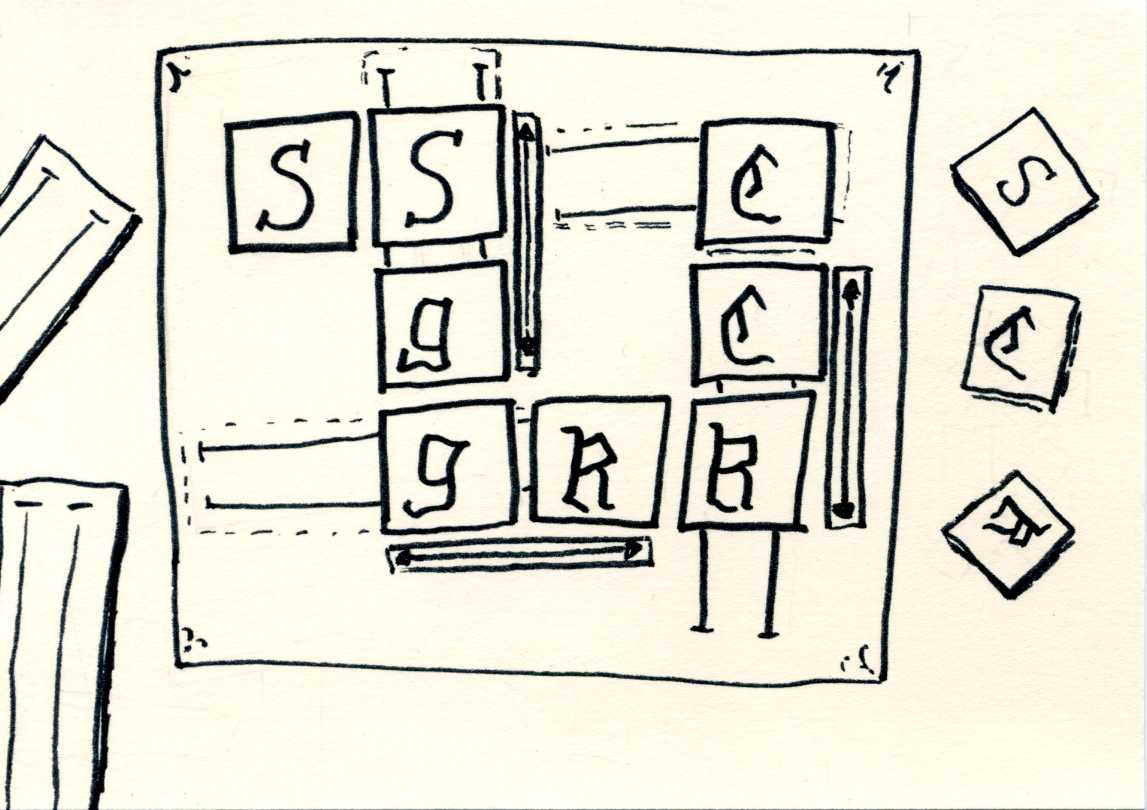 S S C
g C
g R R
S
C
R